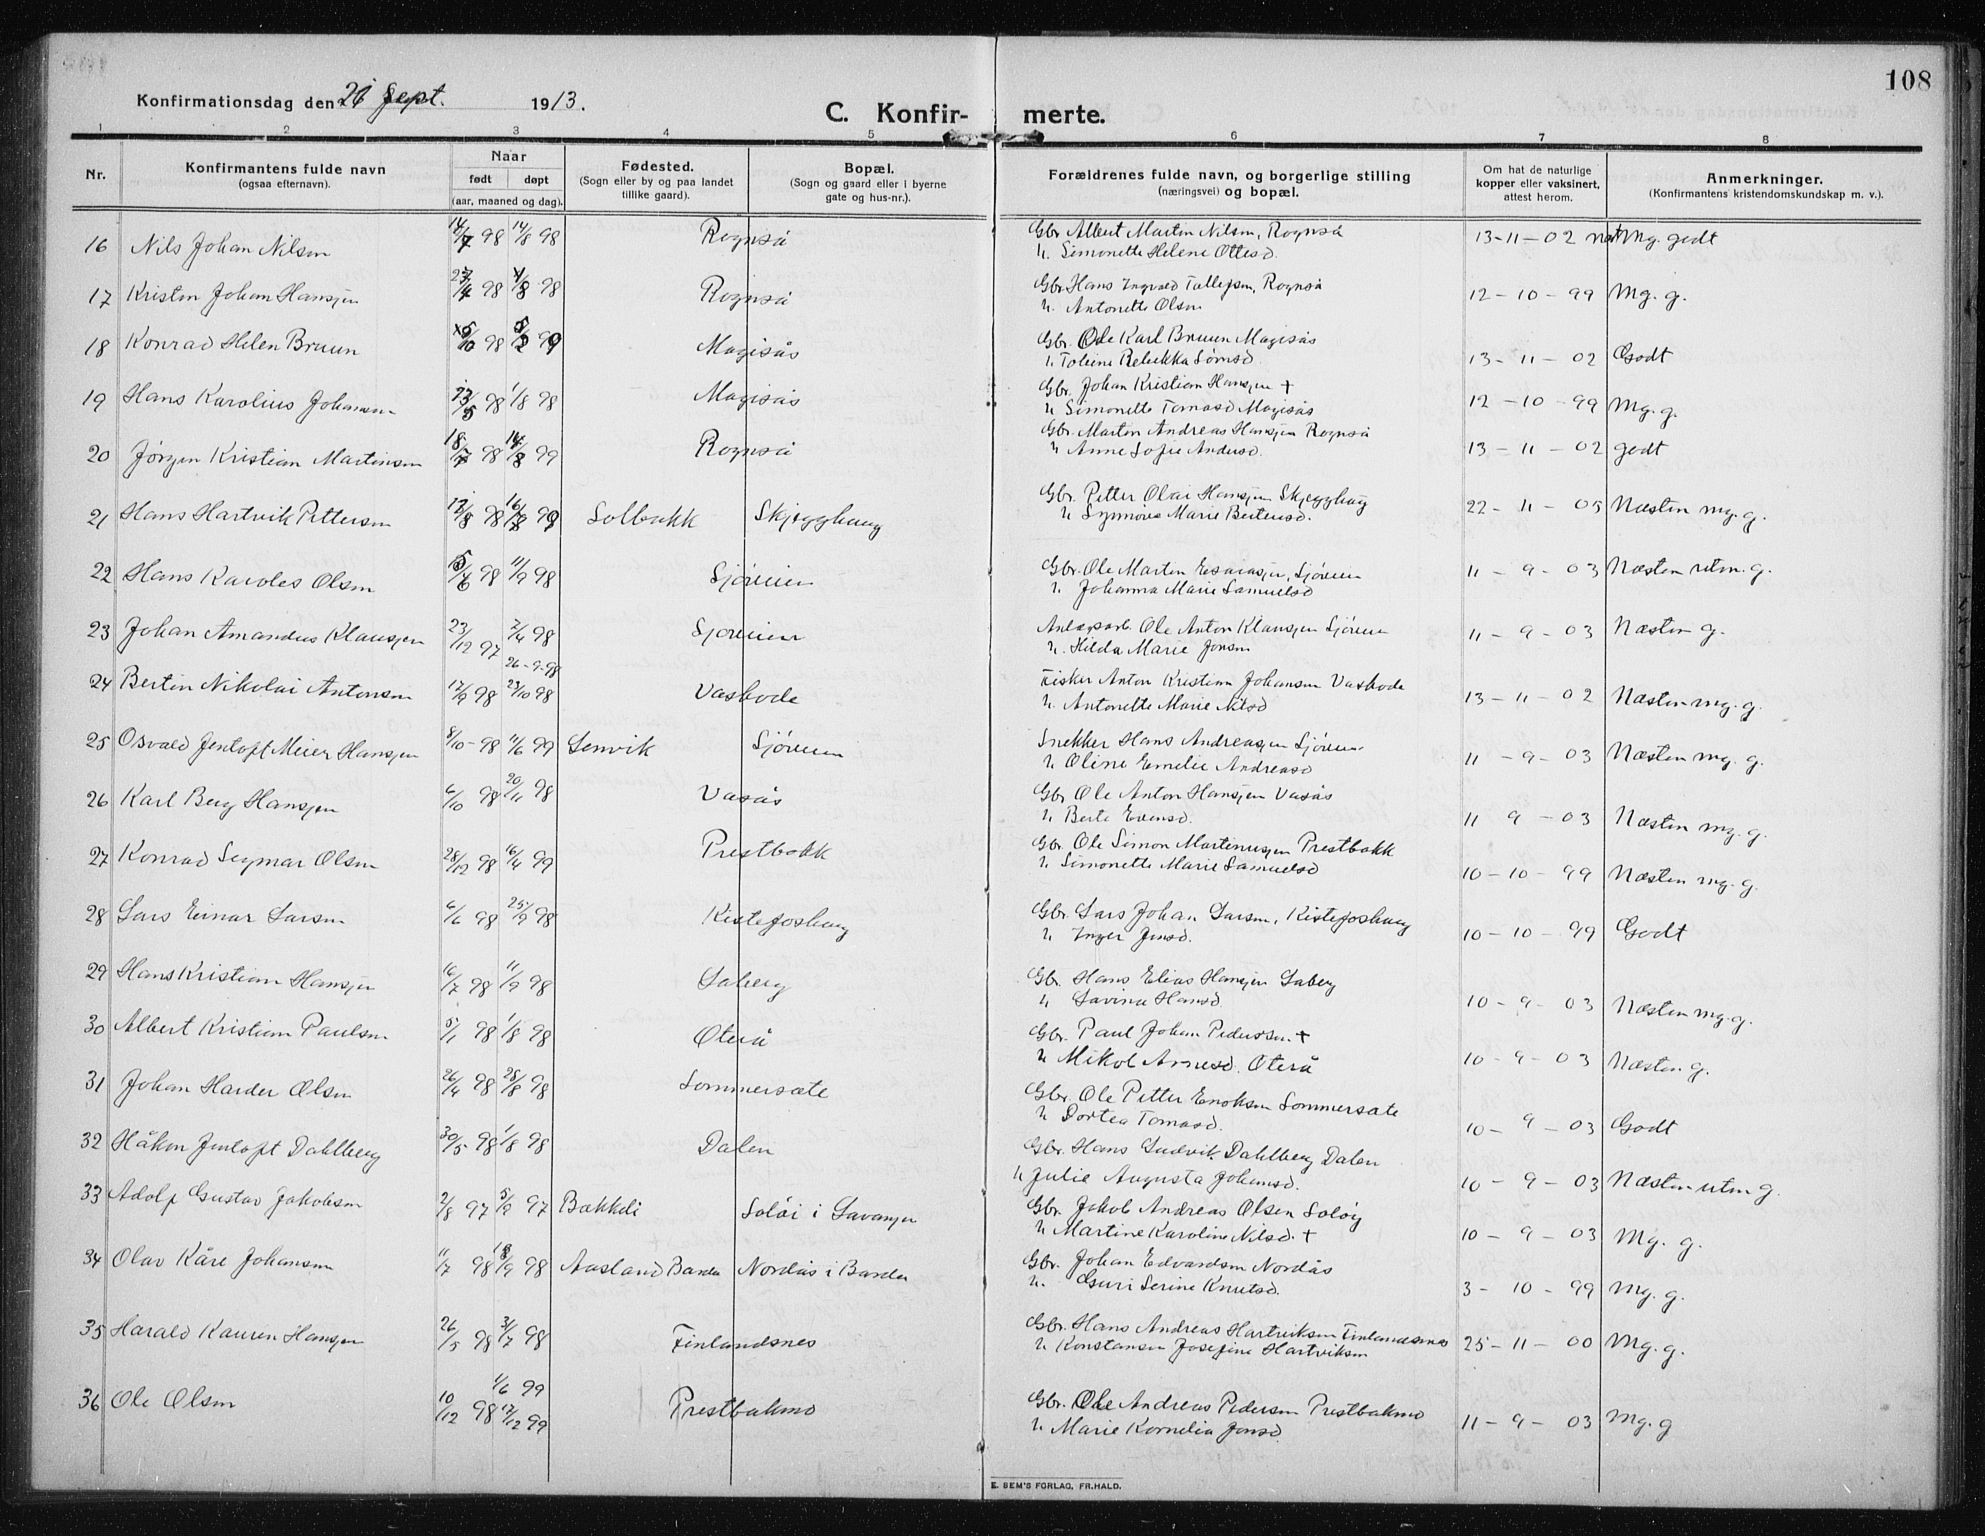 108
Konfirmationsdag den 21 Sept. 1913.
C. Konfirmerte.
1 2 3 4 5 6 7 8
Nr.
Konfirmantens fulde navn
(ogsaa efternavn).
Naar
født døpt
(aar, maaned og dag).
Fødested.
(Sogn eller by og paa landet
tillike gaard).
Bopæl.
(Sogn og gaard eller i byerne
gate og hus-nr.).
Forældrenes fulde navn, og borgerlige stilling
(næringsvei) og bopæl.
Om hat de naturlige
kopper eller vaksinert,
attest herom.
Anmerkninger.
(Konfirmantens kristendomskundskap m. v.).
16 Nils Johan Nilsen 14/7 98 14/8 98 Rognså Gbr Albert Martin Nilsen, Rognså 13-11-02 Mg. godt
h. Simonette Helene Ottesd.
17 Kristen Johan Hansjen 98 98 Rognså Gbr Hans Ingvald Tollefsen, Rognså 12-10-99 Mg. g.
h. Antonette Olsen
18 Konrad Helen Bruun 98 99 Magisås Gbr. Ole Karl Bruun Magisås 13-11-02 Godt
h. Toline Rebekka Sørnsd.
19 Hans Karolius Johansen 98 1/8 98 Magisås Gbr. Johan Kristian Hansjen + 12-10-99 Mg. g.
h. Simonette Tomasd Magisås
20 Jørgen Kristian Martinsen 18/7 98 14/8 99 Rognså Gbr. Martin Andreas Hansjen Rognså 13-11-02 godt
h. Anne Sofie Andersd.
21 Hans Hartvik Pettersen 98 99 Solbakk Skjægghaug Gbr. Petter Olai Hansjen Skjægghaug 22-11-05 Næsten mg. g.
h. Synnøve Marie Bertensd.
22 Hans Karoles Olsen 98 11/9 98 Sjøveien Gbr. Ole Martin Esaiasjen, Sjøveien 11-9-03 Næsten utm. g.
h. Johanna Marie Samuelsd
23 Johan Amandus Klausjen 23/12 97 2/4 98 Sjøveien Anlægsarb. Ole Anton Klausjen Sjøveien 11-9-03 Næsten g.
h. Hilda Marie Jonsen
26-9-98
24 Bertin Nikolai Antonsen 12/9 98 23/10 98 Vasbode Fisker Anton Kristian Johansen Vasbode 13-11-02 Næsten mg. g.
h. Antonette Marie Nilsd
25 Osvald Jentoft Meier Hansjen 8/10-98 11/6 99 Lenvik Sjøveien Snekker Hans Andreasjen Sjøveien 11-9-03 Næsten mg. g.
h Oline Emelie Andreasd
26 Karl Berg Hansjen 6/10 98 20/11 98 Vasås Gbr Ole Anton Hansjen Vasås 11 9-03 Næsten mg. g.
h Berte Evensd.
27 Konrad Segmar Olsen 28/12 98 16/4 99 Prestbakk Gbr. Ole Simon Martinusjen Prestbakk 10-10-99 Næsten mg. g.
h. Simonette Marie Samuelsd
28 Lars Einar Larsen 6/6 98 25/9 98 Kistefoshaug Gbr. Lars Johan Larsen, Kistefoshaug 10-10-99 Godt
h. Inger Jensd.
29 Hans Kristian Hansjen 16/7 98 11/9 98 Laberg Gbr. Hans Elias Hansjen Laberg 10-9-03 Næsten mg. g.
h Lavina Hansd
30 Albert Kristian Paulsen 5/1 98 1/8 98 Oterå Gbr. Paul Johan Pederssen + 10-9-03 Næsten g.
h Mikol Arnesd. Oterå
31 Johan Harder Olsen 26/4 98 28/8 98 Sommersæte Gbr. Ole Petter Enoksen Sommersæte 10-9-03 Godt
h Dortea Tomasd.
32 Håkon Jentoft Dahlberg 30/5 98 1/8 98 Dalen Gbr. Hans Ludvik Dahlberg Dalen 10-9-03 Næsten utm g.
h Julie Augusta Johansd.
33 Adolf Gustav Jakobsen 2/8 97 5/9 97 Bakkeli Soløi i Lavangen Gbr. Jakob Andreas Olsen Soløy 10-9-03 Mg. g.
h Martine Karoline Nilsd. +
34 Olav Kåre Johansen 11/7 98 18/9 98 Aasland Bardu Nordås i Bardu Gbr. Johan Edvardsen Nordås 3-10-99 Mg. g.
h. Guri Serine Knutsd.
35 Harald Kauren Hansjen 26/5 98 31/7 98 Finlandsnes Gbr. Hans Andreas Hartviksen Finlandsnes 25-11-00 Mg. g.
h Konstanse Josefine Hartviksen
1/6 99
36 Ole Olsen 10/12 98 17/12 99 Prestbakmo Gbr. Ole Andreas Pedersen Prestbakmo 11-9-03 Mg. g
h Marie Kornelia Jonsd.
E. SEM'S FORLAG, FR.HALD.